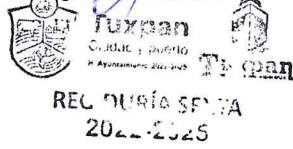 Tuxpan
Ciudad y puerto
H. Ayuntamiento 2022-2025
REGIDURÍA SEXTA
2022-2025